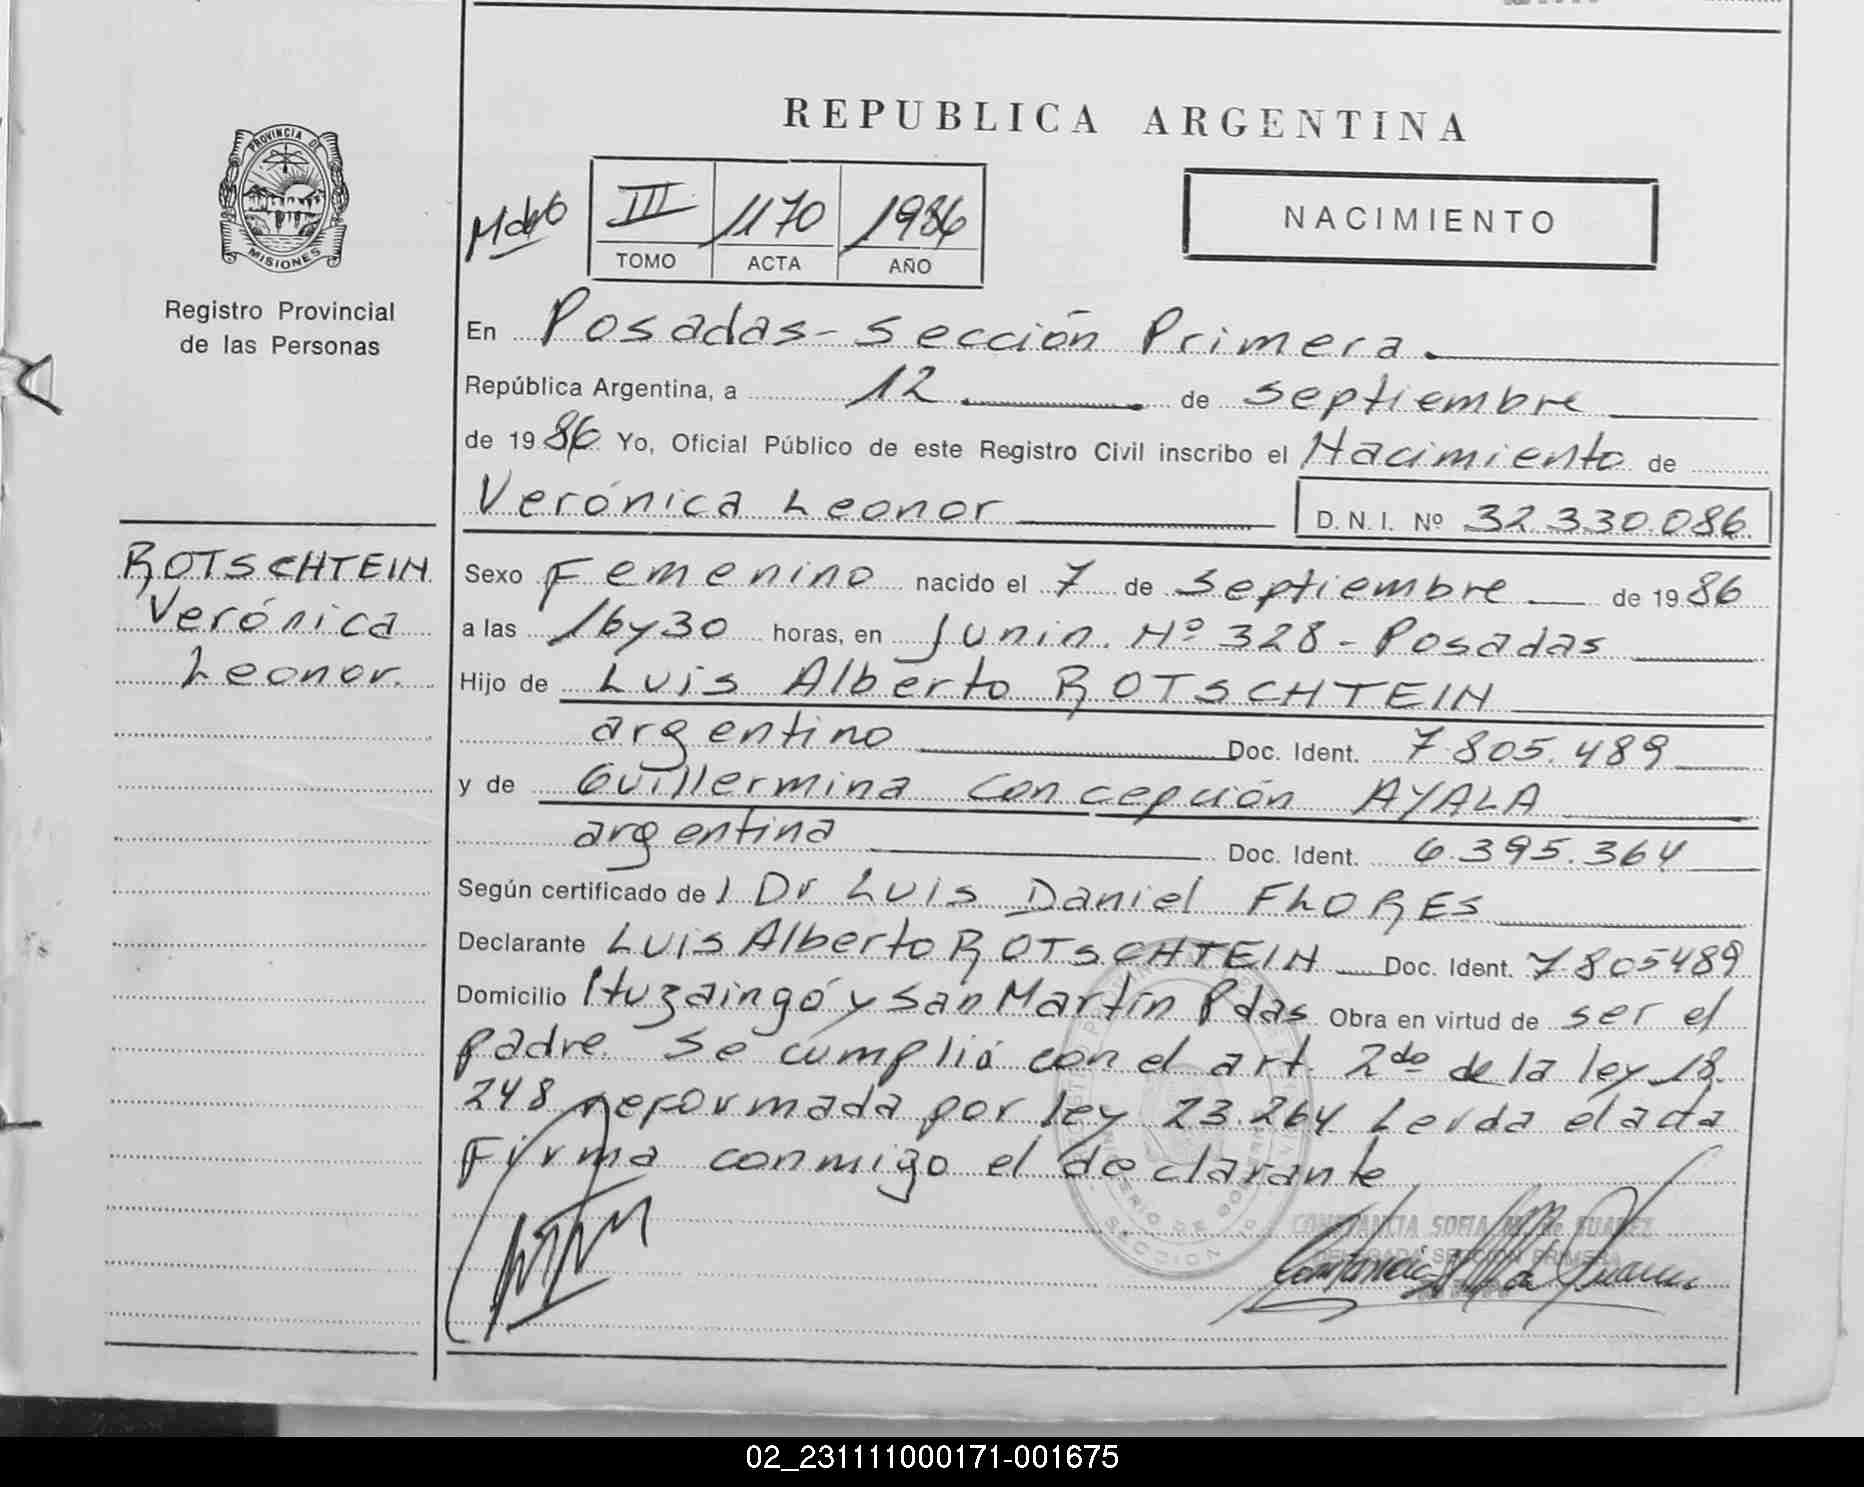 REPUBLICA ARGENTINA
PROVINCIA DE
MISIONES
Registro Provincial
de las Personas
III 1170 1986
TOMO ACTA AÑO
NACIMIENTO
En Posadas - Sección Primera.
República Argentina, a 12 de septiembre
de 1986 Yo, Oficial Público de este Registro Civil inscribo el Nacimiento de
Verónica Leonor D. N. I. Nº 32.330.086
ROTSCHTEIN
Verónica
Leonor.
Sexo Femenino nacido el 7 de septiembre de 1986
a las 16 y 30 horas, en Junin. Nº 328 - Posadas
Hijo de Luis Alberto ROTSCHTEIN
argentino Doc. Ident. 7.805.489
y de Guillermina Concepción AYALA
argentina Doc. Ident. 6.395.364
Según certificado del Dr Luis Daniel FLORES
Declarante Luis Alberto ROTSCHTEIN Doc. Ident. 7.805489
Domicilio Ituzaingó y San Martín Pdas Obra en virtud de ser el
padre. Se cumplió con el art. 2do de la ley 18.
248 reformada por ley 23.264 Leída el acta
Firma conmigo el declarante
CONSTANCIA SOFIA M. de SUAREZ
DELEGADA SECCION PRIMERA
SECCION
02_231111000171-001675